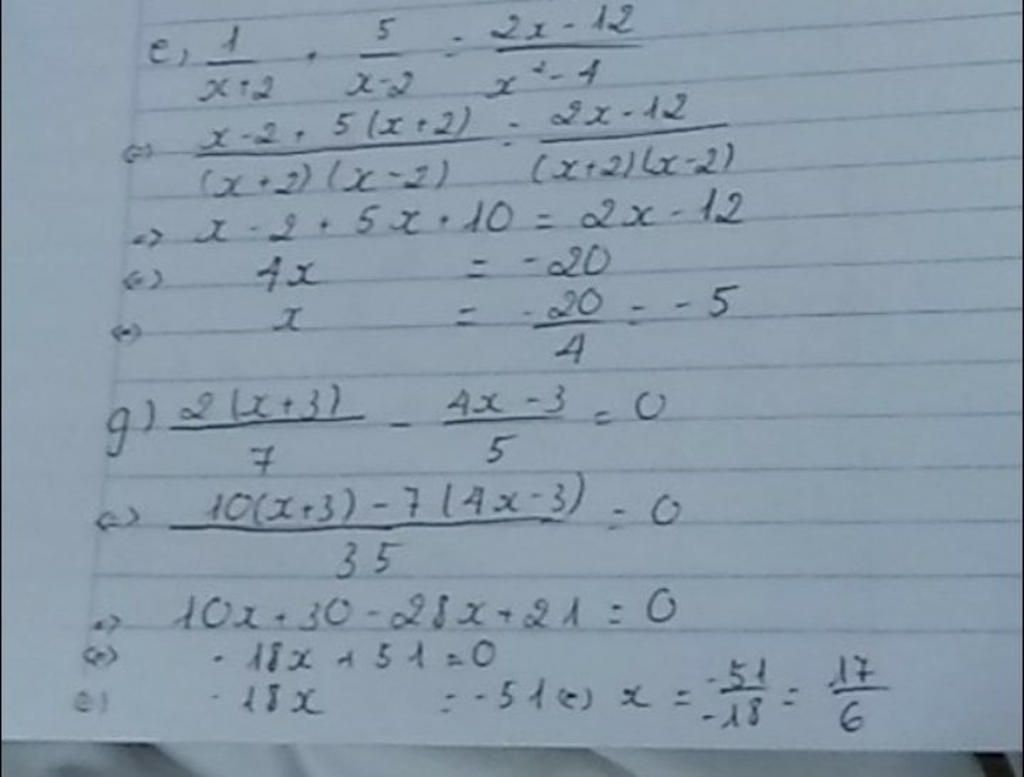 e, 1/(x+2) + 5/(x-2) = (2x-12)/(x²-4)
<=> (x-2+5(x+2))/((x+2)(x-2)) = (2x-12)/((x+2)(x-2))
=> x-2+5x+10 = 2x-12
<=> 4x = -20
<=> x = -20/4 = -5
g) 2(x+3)/7 - (4x-3)/5 = 0
<=> (10(x+3)-7(4x-3))/35 = 0
=> 10x+30-28x+21 = 0
<=> -18x+51=0
<=> -18x = -51 <=> x = -51/-18 = 17/6